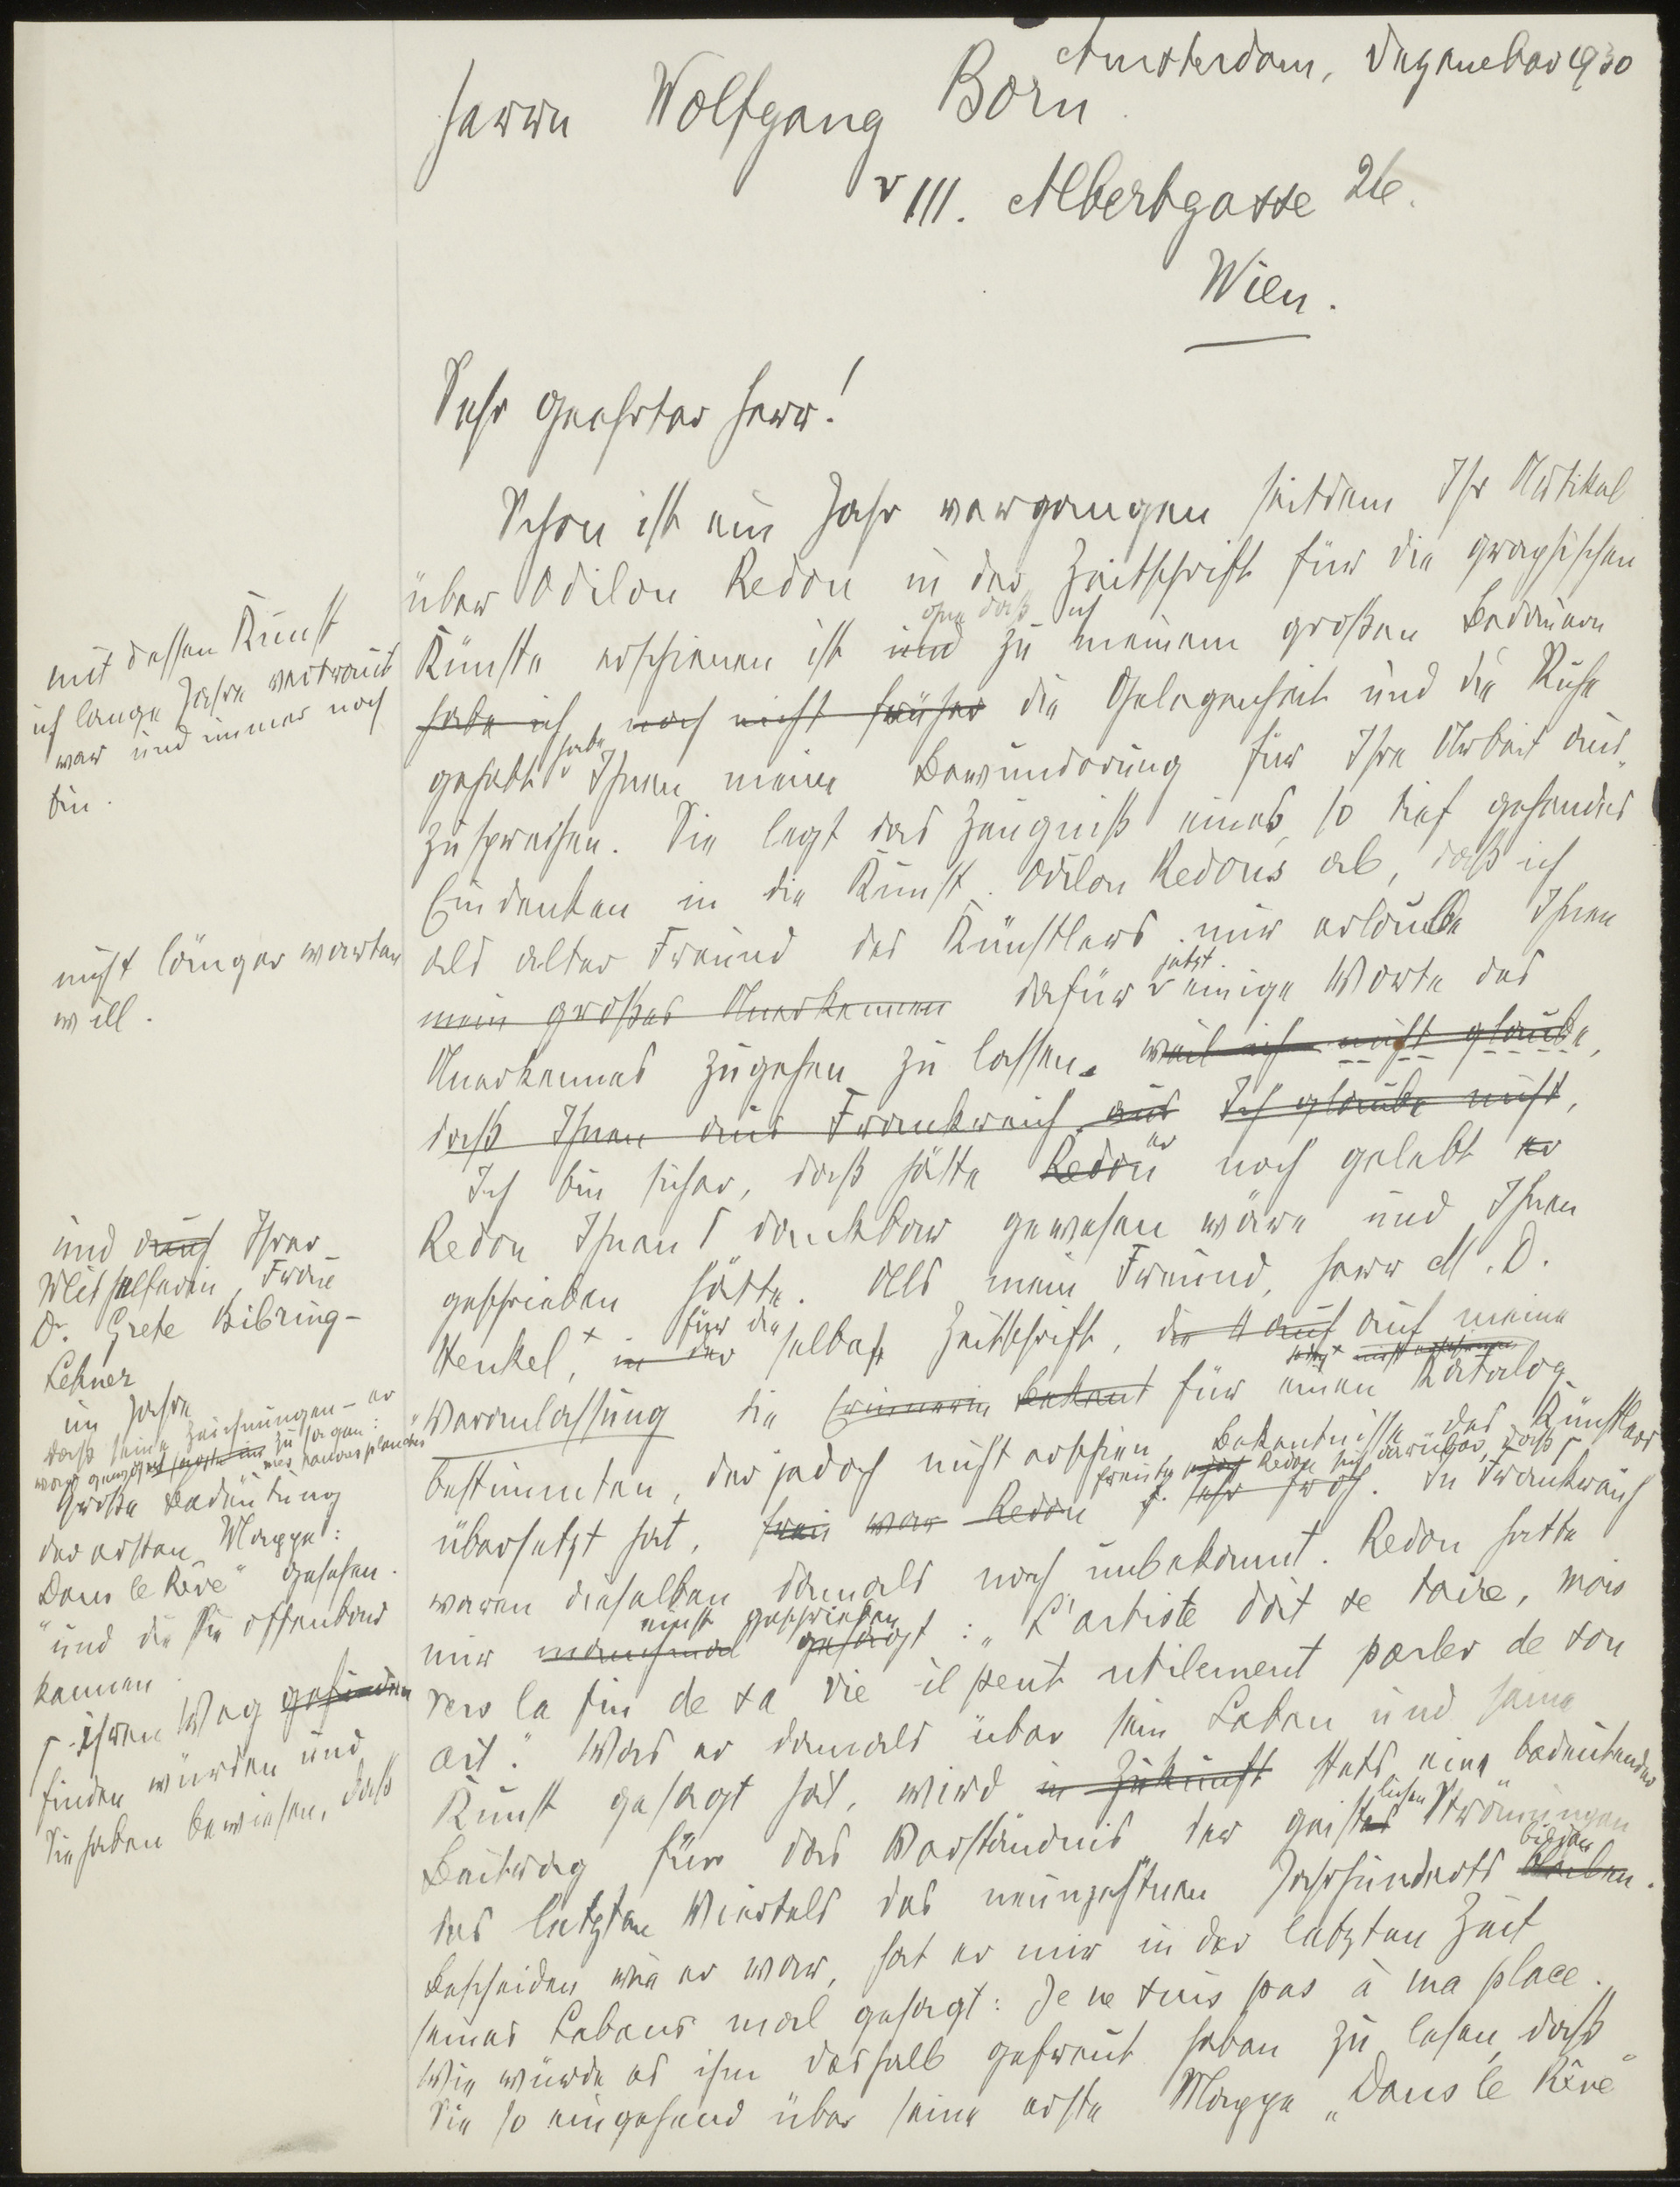 Amsterdam, Dezember 1930
Herrn Wolfgang Born
VIII. Albertgasse 26.
Wien.
Sehr geehrter Herr!
Schon ist ein Jahr vergangen seitdem Ihr Artikel
über Odilon Redon in der Zeitschrift für die graphischen
ohne daß ich
Künste erschienen ist und zu meinem großen Bedauern
habe ich, noch nicht früher die Gelegenheit und die Ruhe
gehabt habe Ihnen meine Bewunderung für Ihre Arbeit aus-
zusprechen. Sie legt das Zeugniß eines so tief gehendes
Eindenken in die Kunst Odilon Redons ab, daß ich
als alter Freund des Künstlers mir erlaube Ihnen
mein großes Anerkennen dafür jetzt einige Worte des
Anerkennes zugehen zu lassen. weil ich nicht glaube,
daß Ihnen aus Frankreich aus Ich glaube nicht,
Ich bin sicher, daß hätte Redon er noch gelebt er
Redon Ihnen dankbar gewesen wäre und Ihnen
geschrieben hätte. Als mein Freund, Herr M. D.
Henkel, in der für die selbe Zeitschrift, die auch auf meine
Veranlassung die für einen Katalog
bestimmten, der jedoch nicht erschien, Bekentnisse des Künstlers
übersetzt hat, war Redon freute Redon sich darüber, daß sehr froh. In Frankreich
waren dieselben damals noch unbekannt. Redon hatte
einst geschrieben
mir manchmal gesagt: „L'artiste doit se taire, mais
vers la fin de sa vie il peut utilement parler de son
art." Was er damals über sein Leben und seine
Kunst gesagt hat, wird in Zukunft stets eine bedeutender
Beitrag für das Verständnis der geistlichen Strömungen
des letzten Viertels des neunzehnten Jahrhunderts bleiben bilden.
Bescheiden wie er war, hat er mir in der letzten Zeit
seines Lebens mal gesagt: Je ne suis pas à ma place.
Wie würde es ihn deshalb gefreut haben zu lesen, daß
Sie so eingehend über seine erste Mappe „Dans le Rêve"
mit dessen Kunst
ich lange Jahre vertraut
war und immer noch
bin.
nicht länger warten
will.
und auch Ihrer
Mithelferin, Frau
Dr. Grete Bibring-
Lehner
im Jahre
daß seine Zeichnungen – er
zu sagen: mes pauvres planches
große Bedeutung
der ersten Mappe:
Dans le Rêve" gesehen.
und die Sie offenbar
kennen
ihren Weg gefunden
finden würden und
Sie haben bewiesen, daß